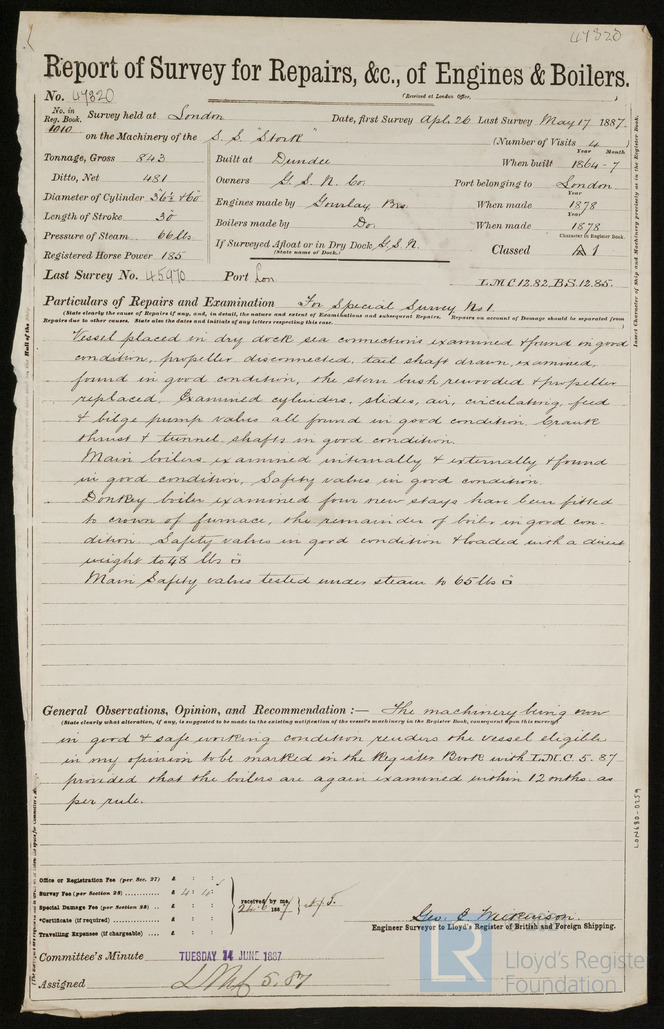 47820
Report of Survey for Repairs, &c., of Engines & Boilers.
No. 47820
(Received at London Office,
No. in Reg. Book. 1010
Survey held at London
Date, first Survey Apl. 26 Last Survey May 17 1887
on the Machinery of the S. S. "Stork"
(Number of Visits 4)
Tonnage, Gross 843
Built at Dundee
When built 1864-7
Year Month
Ditto, Net 481
Owners G. S. N. Co.
Port belonging to London
Diameter of Cylinder 36½ & 60
Engines made by Gourlay Bros.
When made 1878
Year
Length of Stroke 30
Boilers made by Do.
When made 1878
Year
Pressure of Steam 66 lbs
If Surveyed Afloat or in Dry Dock G.S.N.
(State name of Dock.)
Classed A1
Character in Register Book.
Registered Horse Power 185
Last Survey No. 45970 Port Lon
L.M.C. 12.82. B.S. 12.85.
Particulars of Repairs and Examination For Special Survey No 1.
(State clearly the cause of Repairs if any, and, in detail, the nature and extent of Examinations and subsequent Repairs. Repairs on account of Damage should be separated from
Repairs due to other causes. State also the dates and initials of any letters respecting this case.
Vessel placed in dry dock sea connections examined & found in good
condition, propeller disconnected, tail shaft drawn, examined,
found in good condition, the stern bush rewooded & propeller
replaced. Examined cylinders, slides, air, circulating, feed
& bilge pump valves all found in good condition. Crank
thrust & tunnel shafts in good condition.
Main boilers examined internally & externally & found
in good condition, Safety valves in good condition.
Donkey boiler examined four new stays have been fitted
to crown of furnace, the remainder of boiler in good con-
dition. Safety valves in good condition & loaded with a direct
weight to 48 lbs □
Main Safety valves tested under steam to 65 lbs □
General Observations, Opinion, and Recommendation :— The machinery being now
(State clearly what alteration, if any, is suggested to be made in the existing notification of the vessel's machinery in the Register Book, consequent upon this survey)
in good & safe working condition renders the vessel eligible
in my opinion to be marked in the Register Book with L.M.C. 5. 87
provided that the boilers are again examined within 12 mths. as
per rule.
Office or Registration Fee (per Sec. 27) £ : :
Survey Fee (per Section 28) £ 4 : 4 :
Special Damage Fee (per Section 28) £ : :
*Certificate (if required) £ : :
Travelling Expenses (if chargeable) £ : :
received by me,
24/6/1887
Geo. C. Mckinson.
Engineer Surveyor to Lloyd's Register of British and Foreign Shipping.
Committee's Minute TUESDAY 14 JUNE 1887
Assigned LMC 5.87
Insert Character of Ship and Machinery precisely as in the Register Book.
LON680-0259
LR
Lloyd's Register
Foundation